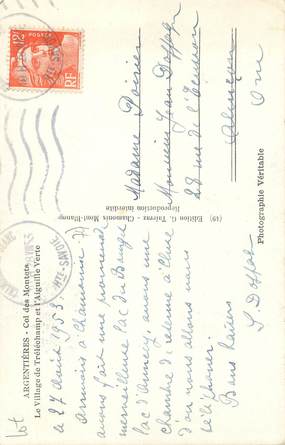 ARGENTIÈRES - Col des Montets
Le Village de Tréléchamp et l'Aiguille Verte
le 27 Août 1953
arrivés à Chamonix
avons fait une promenade
merveilleuse lac du Bourget
lac d'Annecy, avons une
chambre de retenue à
d'où nous allons vous
téléphoner.
Bons baisers
S. Doffat
(49) Edition G. Tairraz - Chamonix Mont-Blanc
Reproduction interdite
Madame Poirier
Monsieur Jean
28 rue de
Alençon
Orne
Photographie Véritable
12F
POSTES
RF
Lot